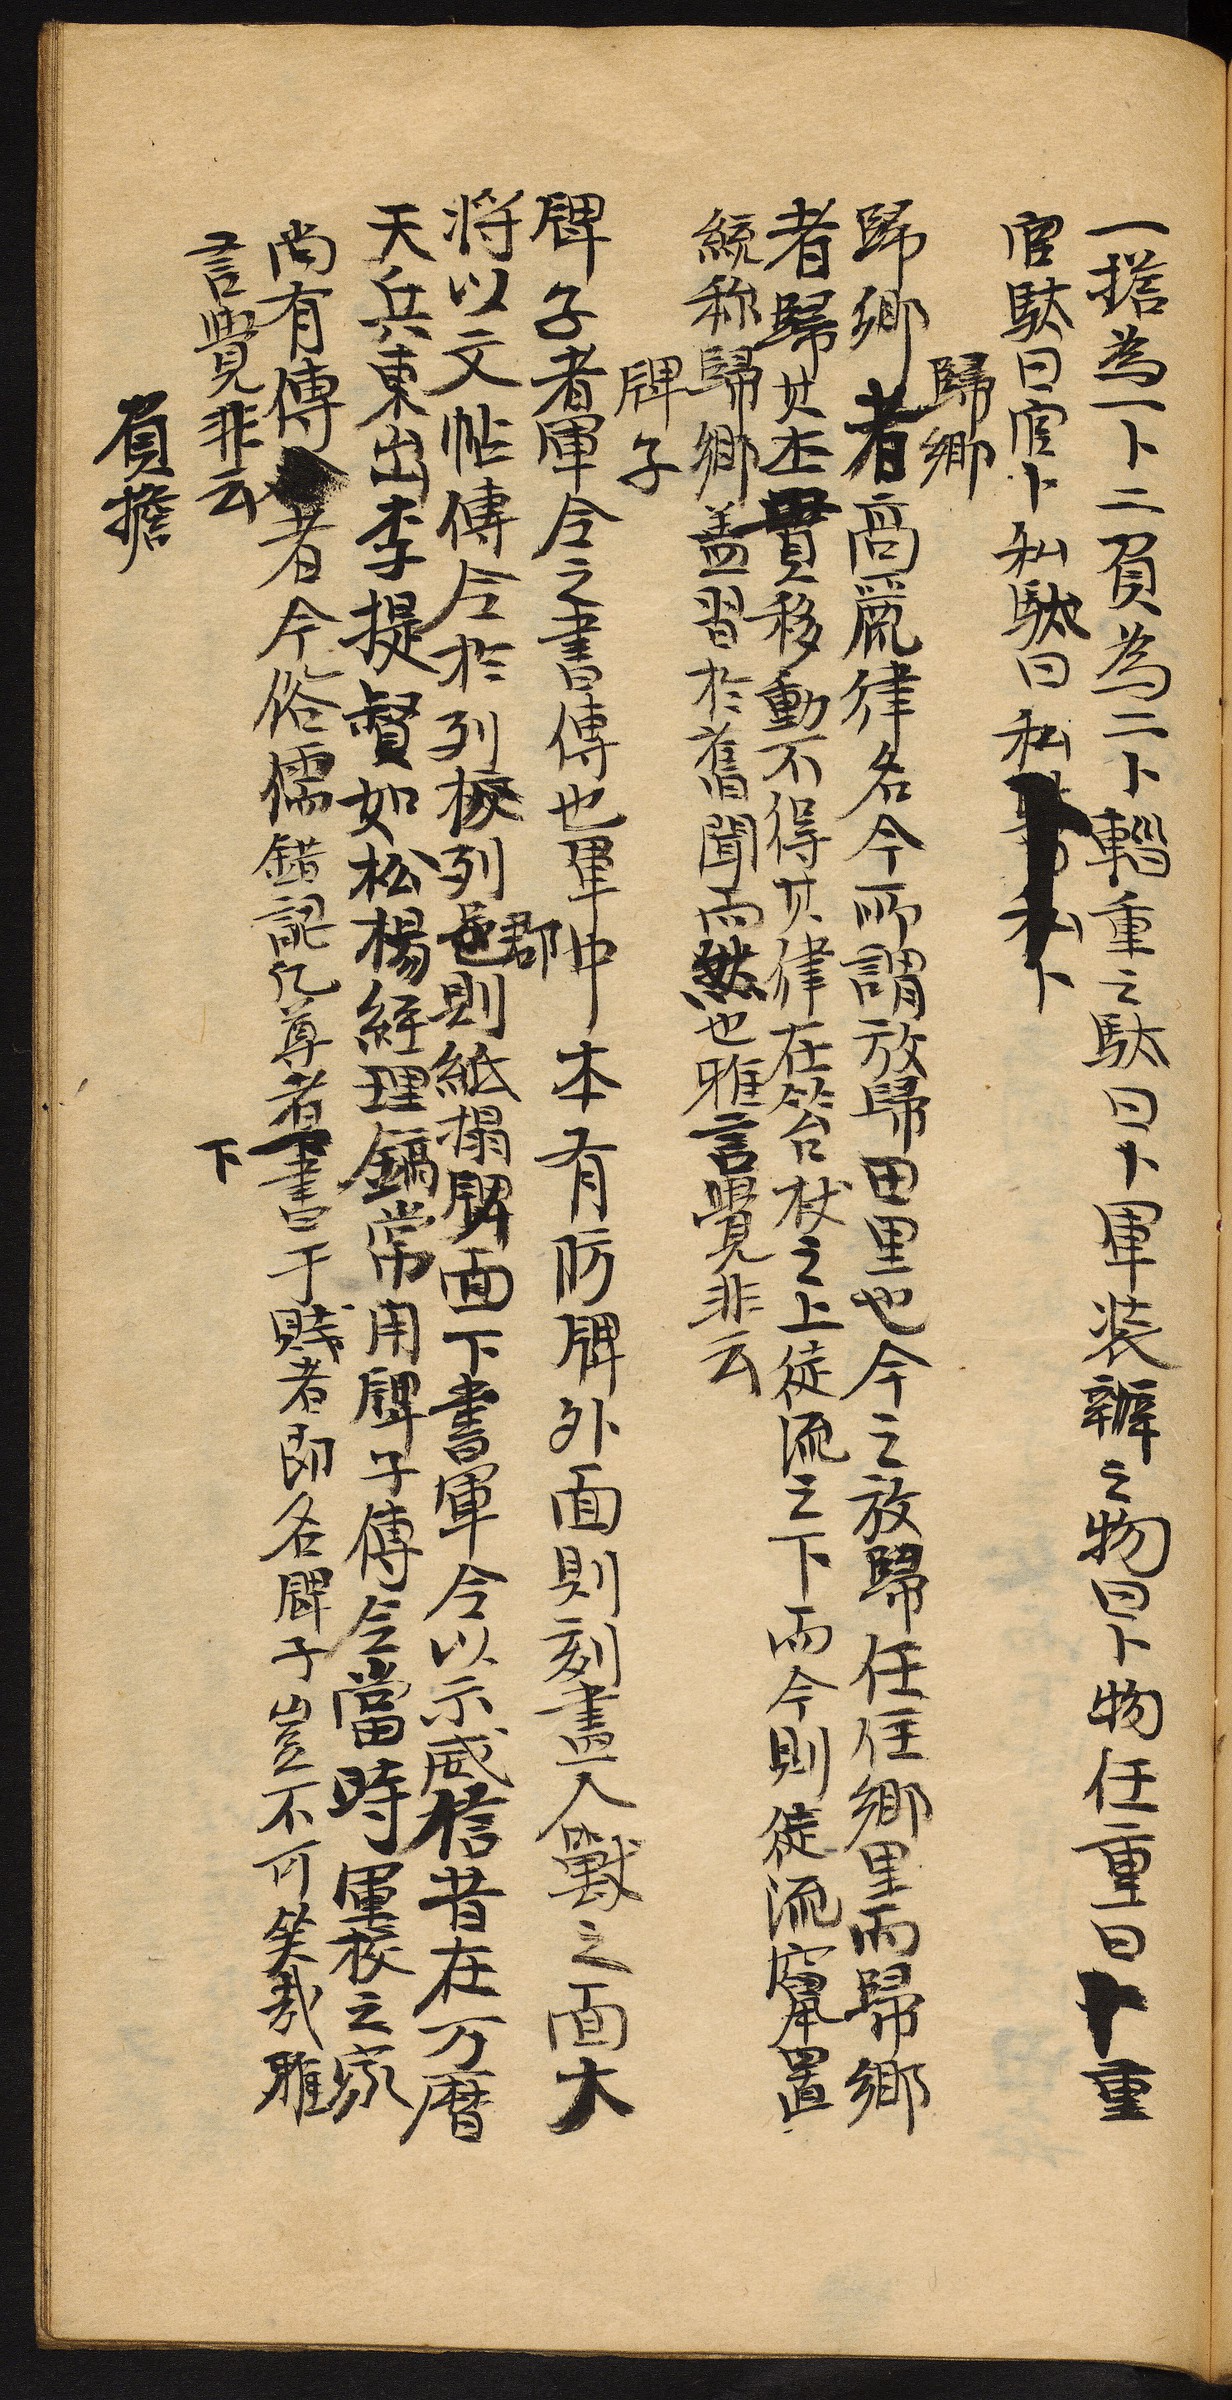 一擔為一卜二負為二卜輜重之馱曰卜軍装辦之物曰卜物任重曰卜重
官馱曰官卜私馱曰私卜
歸鄉
歸鄉者高麗律名今所謂放歸田里也今之放歸任住鄉里而歸鄉
者歸其本貫移動不得其律在笞杖之上徒流之下而今則徒流竄置
統称歸鄉盖習於舊聞而然也雅言覺非云
牌子
牌子者軍令之書傳也軍中本有防牌外面則刻畵人獸之面大
将以文帖傳令於列校列郡則紙榻牌面下書軍令以示威信昔在万曆
天兵東出李提督如松楊經理鎬常用牌子傳令當時軍校之家
尚有傳者今俗儒錯認凡尊者下書于賤者即名牌子豈不可笑哉雅
言覺非云
負擔